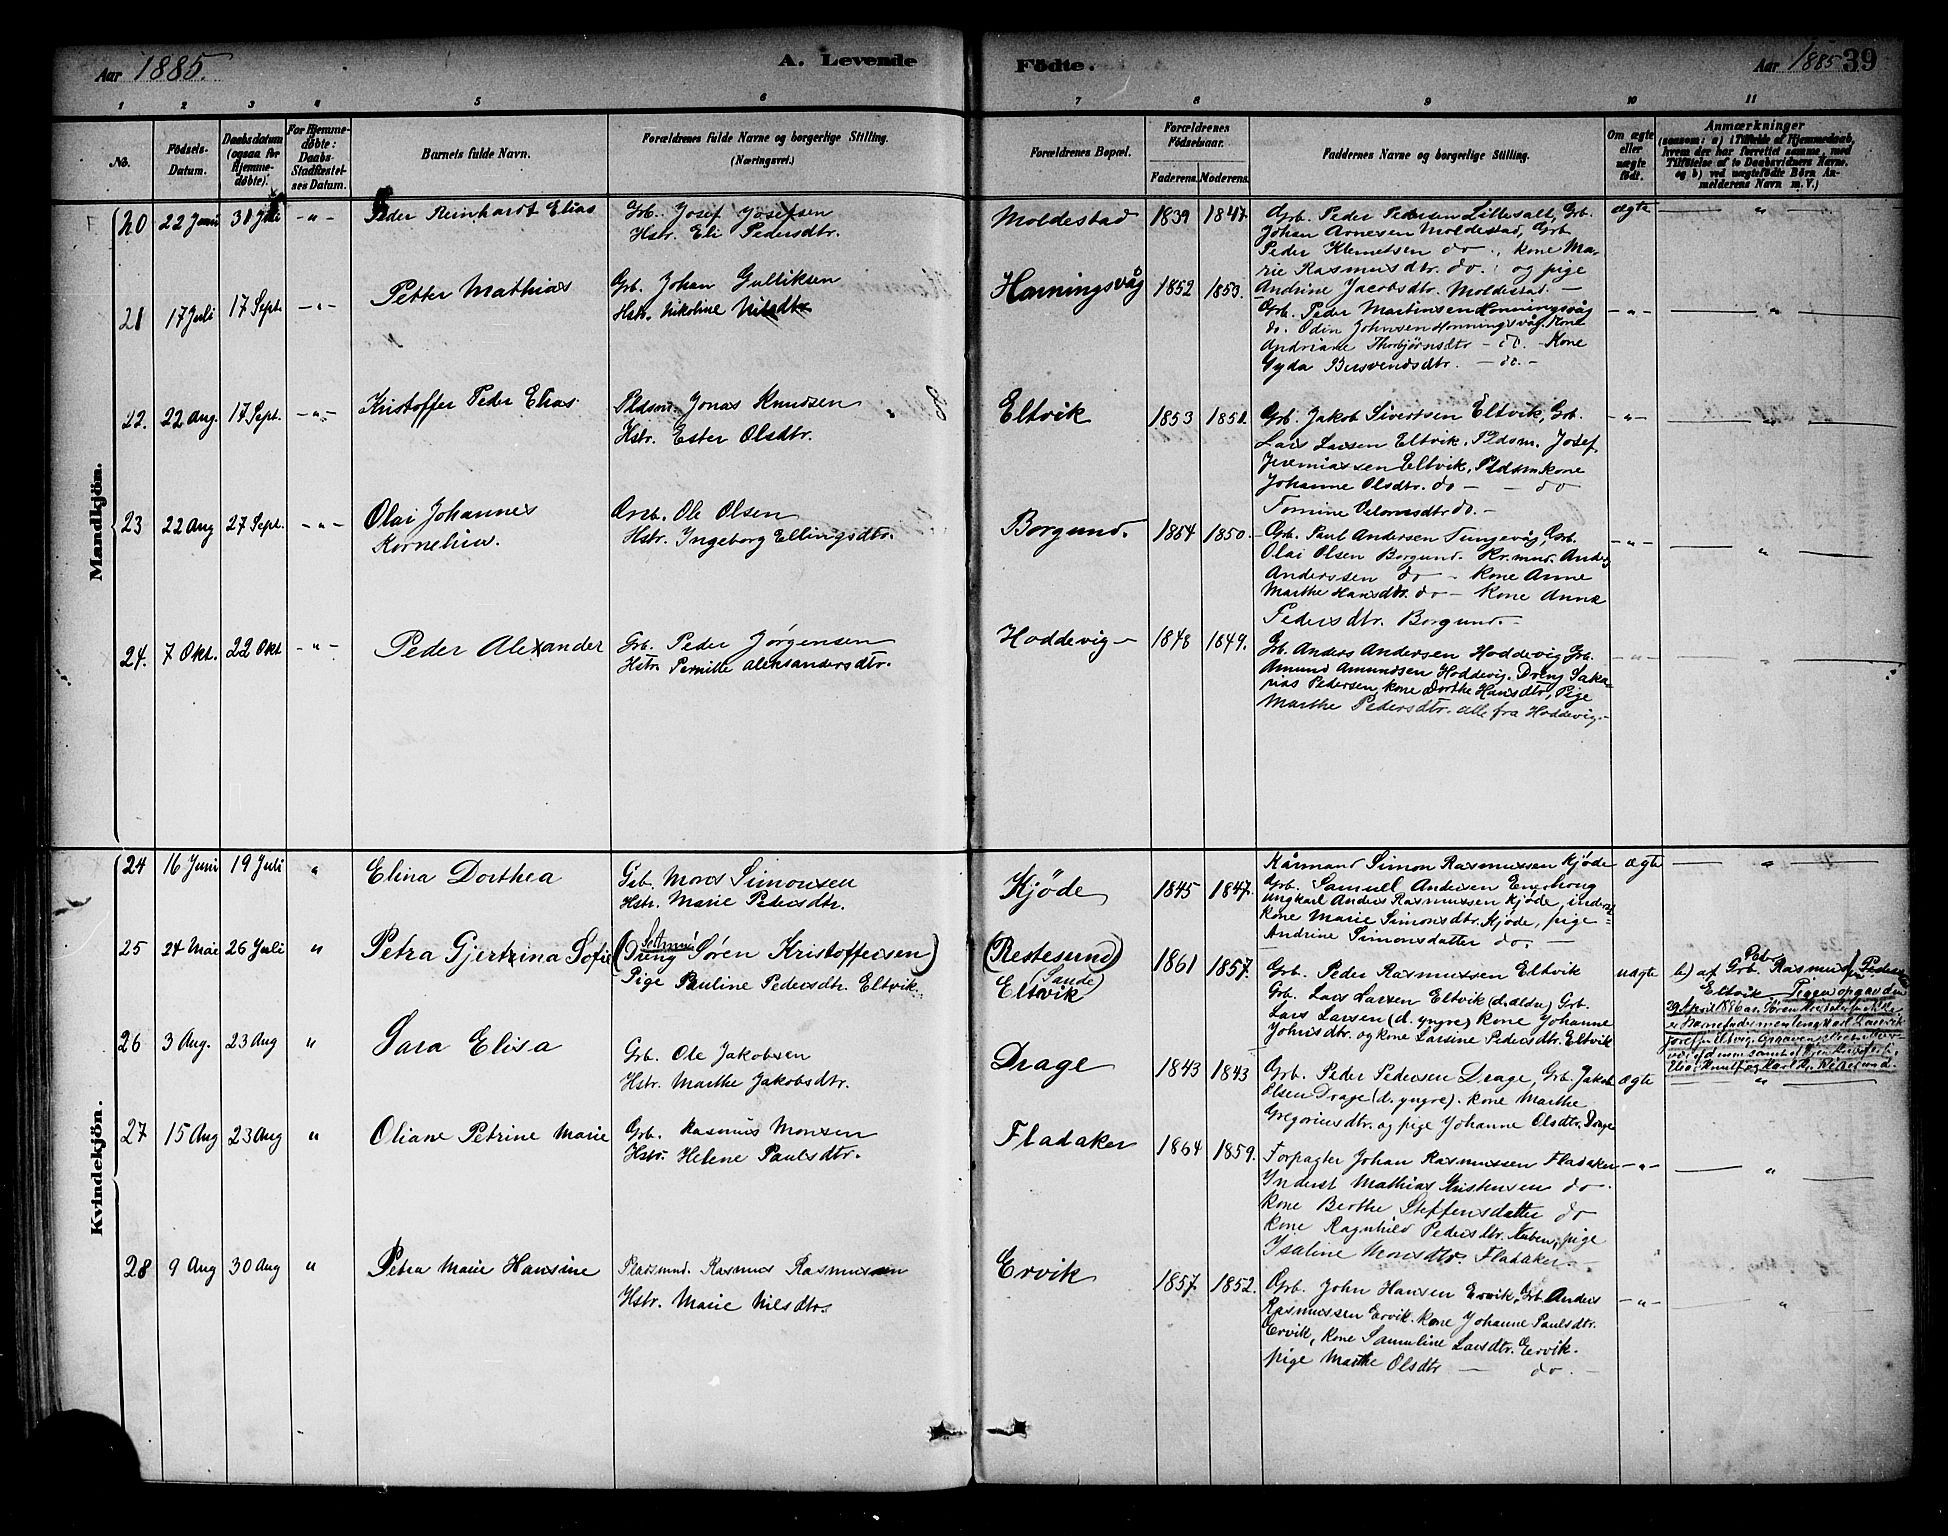 Aar 1885.
A. Levende
Födte.
Aar 1885
39
1 2 3 4 5 6 7 8 9 10 11
No.
Födsels-
Datum.
Daabsdatum
(ogsaa for
Hjemme-
døbte).
For Hjemme-
døbte:
Daabs-
Stadfæstel-
ses Datum.
Barnets fulde Navn.
Forældrenes fulde Navne og borgerlige Stilling.
(Næringsvei.)
Forældrenes Bopæl.
Forældrenes
Födselsaar.
Faderens. Moderens.
Faddernes Navne og borgerlige Stilling.
Om ægte
eller
uægte
født.
Anmærkninger
(saasom: a) i Tilfælde af Hjemmedaab,
hvem der har forrettet samme, med
Tilføielse af to Daabsvidners Navne,
og b) ved uægtefødte Börn An-
melderens Navn m. V.)
Mandkjön.
20 22 Juni 30 Juli - " - Peder Reinhardt Elias
Grb. Josef Josefsen
Hstr. Eli Pedersdtr.
Moldestad 1839 1847.
Grb. Peder Pedersen Lillesalt, Grb.
Johan Arnesen Moldestad, Grb
Peder Klemetsen do., kone Ma-
rie Rasmusdtr. do. og pige
Andrine Jacobsdtr. Moldestad. -
ægte "
21 17 Juli 17 Sept. - " - Petter Mathias
Grb. Johan Gulliksen
Hstr. Nikoline Nilsdtr
Honningsvåg 1852 1853.
Grb. Peder Martinsen Honningsvåg
do. Odin Johnsen Honningsvåg. Kone
Andriane Thorbjørnsdtr - do. - Kone
Gyda Busvendsdtr. - do. -
- " - "
22. 22 Aug. 17 Sept. - " - Kristoffer Peder Elias
Pldsm. Jonas Knudsen
Hstr. Ester Olsdtr.
Eltvik 1853 1851.
Grb. Jakob Sivertsen Eltvik, Grb.
Lars Larsen Eltvik, Pldsm. Josef
Jeremiassen Eltvik, Pldsm kone
Johanne Olsdtr. do - - do
Tomine do. -
- " - "
23 22 Aug 27 Sept. - " - Olai Johannes
Kornelius.
Areb. Ole Olsen
Hstr. Ingeborg Ellingsdtr.
Borgund. 1854 1850.
Grb. Paul Andersen Tungevåg, Grb.
Olai Olsen Borgund. Kr.mnd. Anders
Anderssen do - kone Anne
Marthe Hansdtr. do - kone Anne
Pedersdtr. Borgund. -
- " - "
24. 7 Okt. 22 Okt - " - Peder Alexander
Grb. Peder Jörgensen
Hstr. Pernille Aleksandersdtr.
Hoddevig - 1848 1849.
Grb. Anders Andersen Hoddevig Grb.
Amund Amundsen Hoddevig. Dreng Saka-
rias Pedersen, kone Dorthe Hansdtr, Pige
Marthe Pedersdtr. alle fra Hoddevig. -
- " - "
Kvindekjön.
24 16 Juni 19 Juli " Elina Dorthea
Grb. Mons Simonsen
Hstr. Marie Pedersdtr.
Kjöde 1845 1847.
Kårmand Simon Rasmussen Kjöde
Grb. Samuel Andersen Enerhoug
Ungkarl Anders Rasmussen Kjöde, inderst
kone Marie Simonsdtr. Kjöde, pige -
Andrine Simonsdatter do. -
ægte "
25 24 Mai 26 Juli " Petra Gjertrina Sofie
(Dreng Sören Kristoffersen)
Pige Pauline Pedersdtr. Eltvik.
(Restesund)
(Sande)
Eltvik
1861 1857.
Grb. Peder Rasmussen Eltvik
Grb. Lars Larsen Eltvik (d. ældre) Grb.
Lars Larsen (d. yngre) kone Johanne
Johnsdtr. og kone Larsine Pedersdtr. Eltvik
uægte
b) af Grb. Rasmus Peders
Eltvik
26 3 Aug. 23 Aug " Sara Elisa
Grb. Ole Jakobsen
Hstr. Marthe Jakobsdtr.
Drage 1843 1843
Grb. Peder Pedersen Drage, Grb. Jakob
Olsen Drage (d. yngre). kone Marthe
Gregoriusdtr. og pige Johanne Olsdtr. Drage
ægte "
27 15 Aug 23 Aug " Oliane Petrine Marie
Grb. Rasmus Monsen
Hstr. Helene Paulsdtr.
Fladaker 1864 1859.
Forpagter Johan Rasmussen Fladaker
Inderst Mathias Kristensen do
kone Berthe Steffensdatter do
kone Ragnhild Pedersdtr. Naben, pige
Isaline Monsdtr. Fladaker -
- " - "
28 9 Aug 30 Aug " Petra Marie Hansine
Pladsmnd. Rasmus Rasmussen
Hstr. Marie Nilsdtr.
Ervik 1857. 1852.
Grb. John Hansen Ervik, Grb. Anders
Rasmussen Ervik. kone Johanne Paulsdtr.
Ervik, kone Samuline Larsdtr. Ervik.
pige Marthe Olsdtr - do. -
- " - "